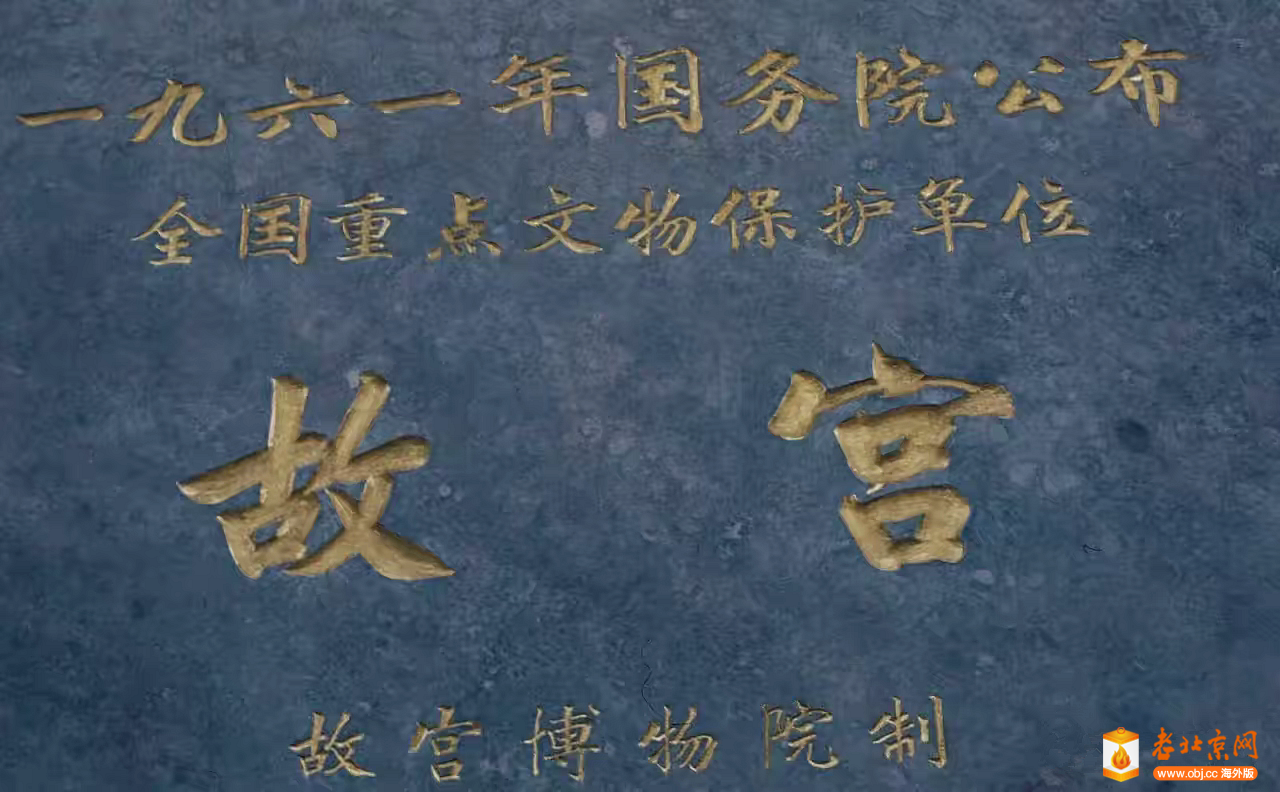 一九六一年国务院公布
全国重点文物保护单位
故宫
故宫博物院制
老北京网
www.obj.cc 海外版